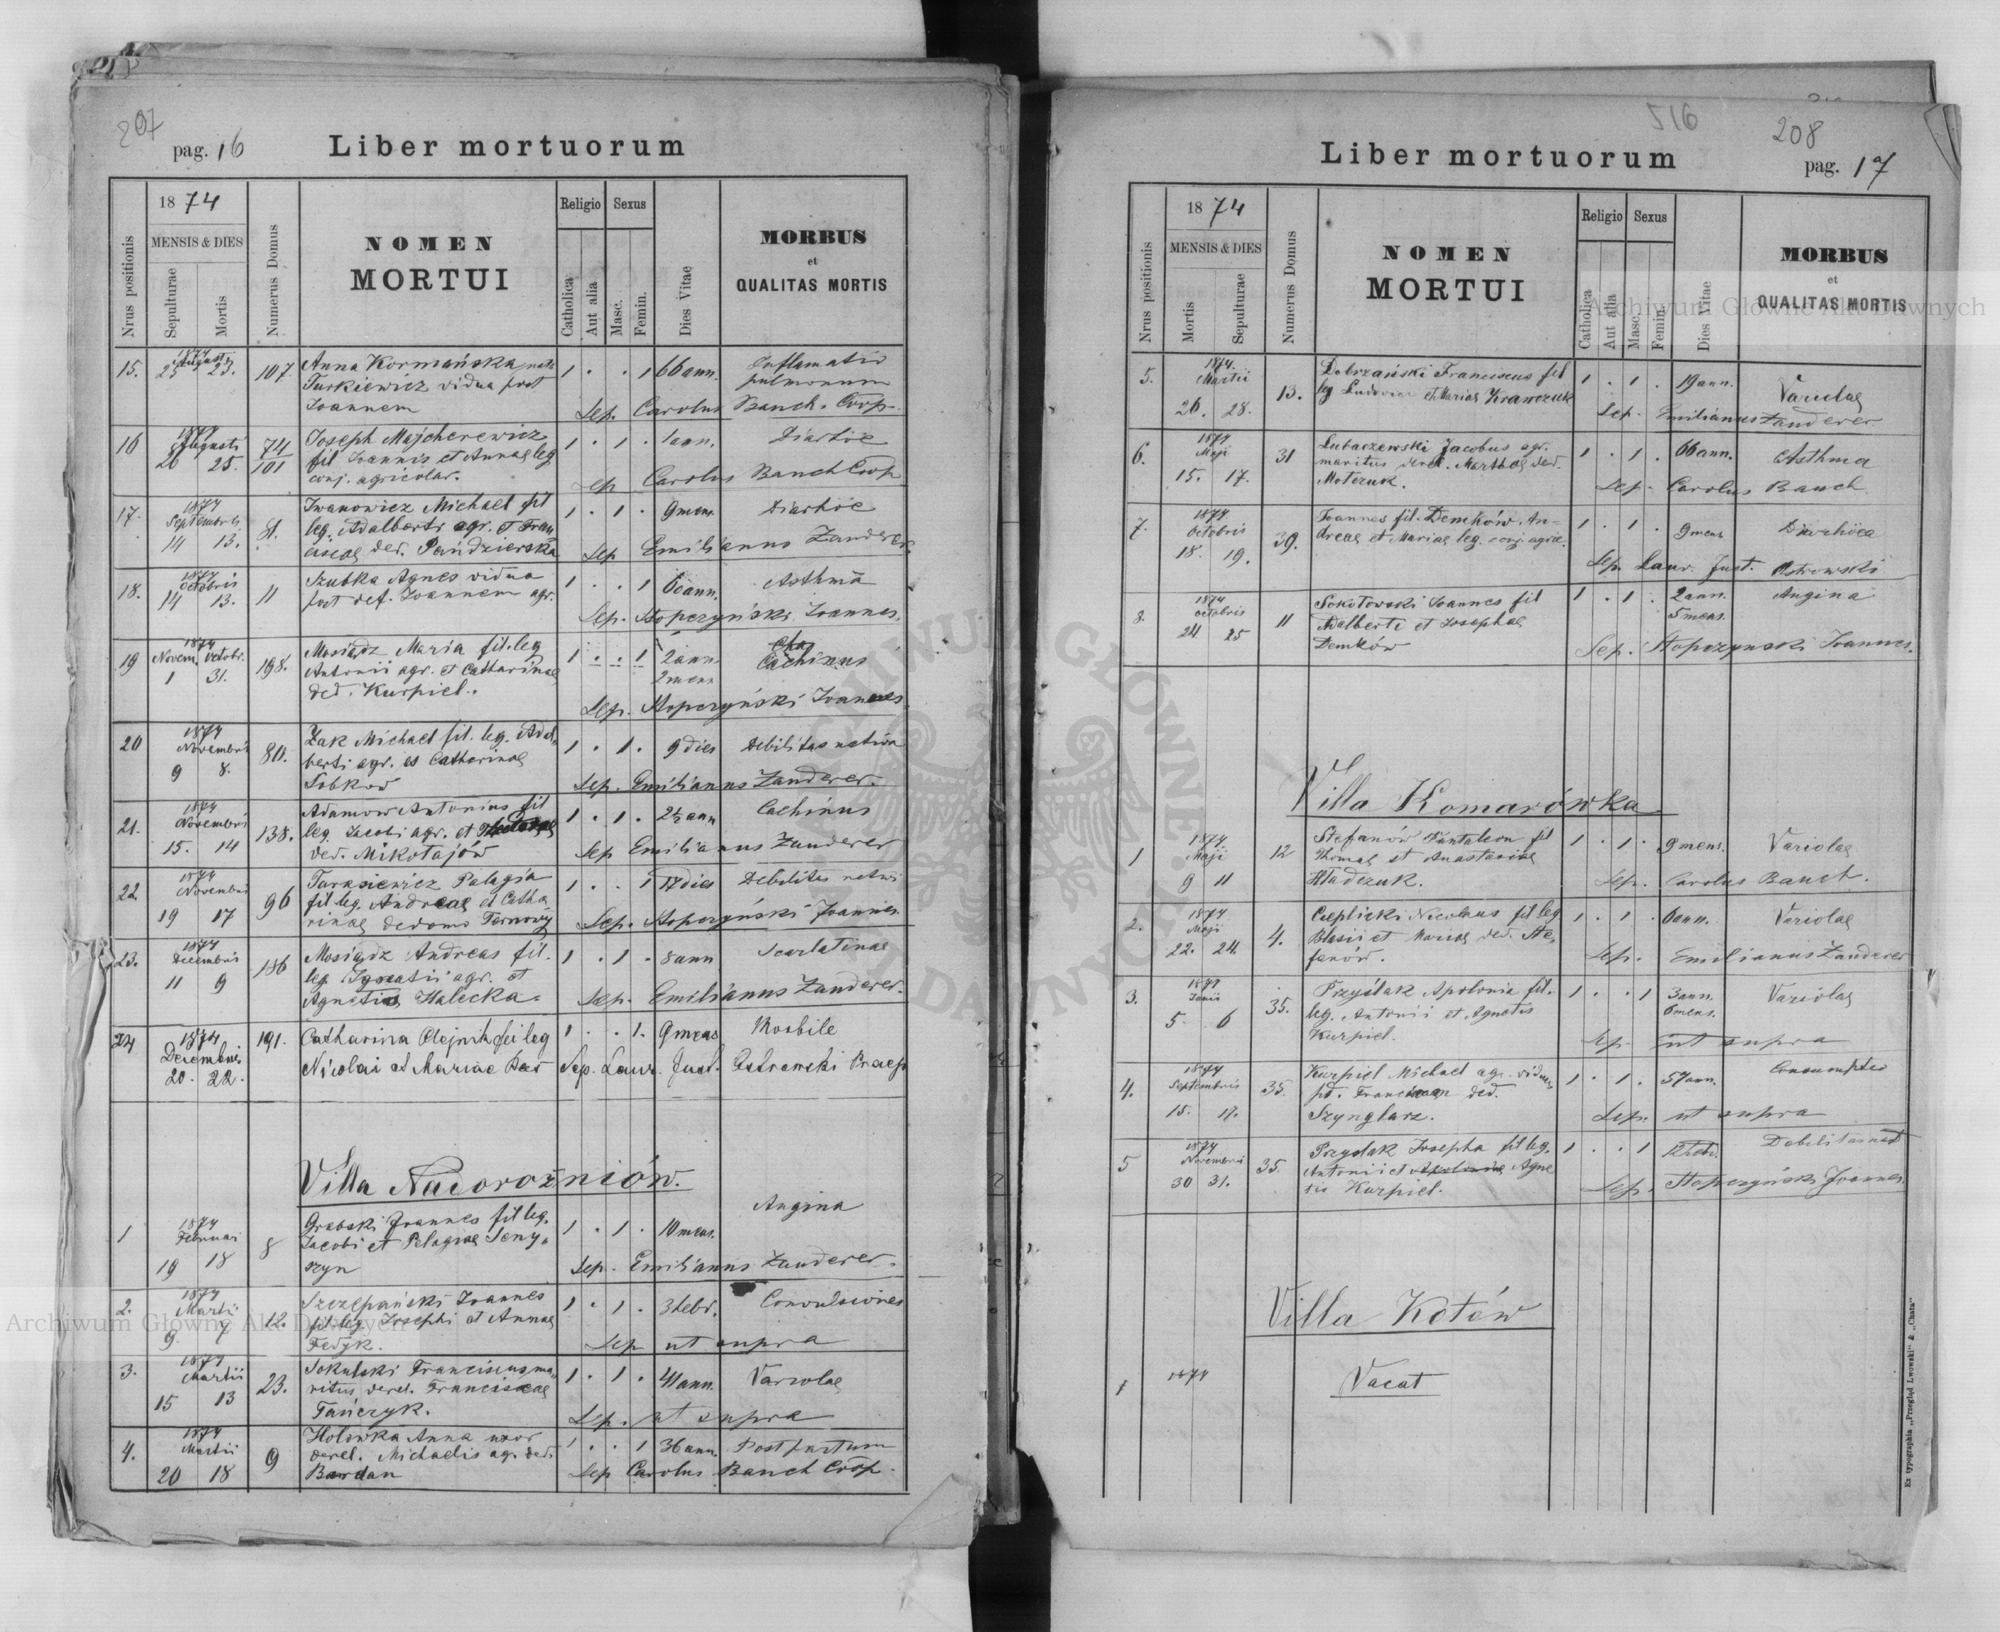 207
pag. 16
Liber mortuorum
Nrus positionis
1874
MENSIS & DIES
Sepulturae
Mortis
Numerus Domus
NOMEN
MORTUI
Religio
Sexus
Catholica
Aut alia
Masc.
Femin.
Dies Vitae
MORBUS
et
QUALITAS MORTIS
15. 1874 Augusti 25 23. 107 Anna Kormańska nata 1 . . 1 66 ann. Inflamatio
Turkiewicz vidua post pulmonum
Joannem Sep. Carolus Banch. Coop.
16 1874 Augusti 26 25. 74/101 Joseph Majcherewicz 1 . 1 . 1 ann. Diarhöe
fil Joannis et Annae leg
conj. agricolar. Sep Carolus Banch Coop
17. 1874 Septembris 14 13. Iwanowicz Michael fil 1 . 1 . 9 men. Diarhöe
leg. Adalberti agr. et Fran
ciscae ded. Pańdzierska Sep Emilianus Zanderer.
18. 1874 Octobris 14 13. 11 Szubka Agnes vidua 1 . . 1 60 ann. Asthma
post def. Joannem agr. Sep. Stopczyński Joannes.
19 1874 Novem. Octobr. 1 31. 198. Mosiądz Maria fil. leg 1 . . 1 2 ann. Cachinus
Antonii agr. et Catharinae 2 mens
ded. Kurpiel. Sep. Stopczyński Joannes
20 1874 Novembris 9 8. 80. Żak Michael fil. leg. Adal- 1 . 1 . 9 dies Debilitas nativa
berti agr. et Catharinae
Sobkow Sep. Emilianus Zanderer.
21. 1874 Novembris 15. 14 138. Adamow Antonius fil 1 . 1 . 2½ ann Cachinus
leg. Jacobi agr. et
ded. Mikołajów Sep Emilianus Zanderer
22. 1874 Novembris 19 17 96 Tarasiewicz Pelagia 1 . . 1 17 dies Debilitas nativ
fil leg. Andreae et Catha-
rinae dedomo Ternowy Sep. Stopczyński Joannes.
23. 1874 Decembris 11 9 186 Mosiądz Andreas fil. 1 . 1 . 8 ann Scarlatinae
leg. Ignatii agr. et
Agnetis Halecka. Sep. Emilianus Zanderer.
24 1874 Decembris 20. 22. 191. Catharina Olejnik fil leg 1 . . 1. 9 mens Morbile
Nicolai et Mariae Sep. Laur. Just. Ostrowski Praep
Villa Nadorożniów.
1 1874 Februari 19 18 8 Grabski Joannes fil leg. 1 . 1 . 10 mens. Angina
Jacobi et Pelagiae Seny-
szyn Sep. Emilianus Zanderer.
2. 1874 Martii 9. 7 12. Szczepański Joannes 1 . 1 . 3 hebr. Convulsiones
fil leg. Josephi et Annae
Fedyk. Sep ut supra
3. 1874 Martii 15 13 23. Sokulski Franciscus ma- 1 . 1 . 41 ann. Variolae
ritus derel. Franciscae
Tańczyk. Sep. ut supra
4. 1874 Martii 20 18 9 Holowka Anna uxor 1 . . 1 36 ann. Post partum
derel. Michaelis agr. ded.
Bardan Sep Carolus Banch Coop.
516
208
Liber mortuorum
pag. 17
Nrus positionis
1874
MENSIS & DIES
Mortis
Sepulturae
Numerus Domus
NOMEN
MORTUI
Religio
Sexus
Catholica
Aut alia
Masc.
Femin.
Dies Vitae
MORBUS
et
QUALITAS MORTIS
5. 1874. Martii 26. 28. 13. Dobrzański Franciscus fil 1 . 1 . 19 ann. Variolae
leg Ludovici et Mariae Krawczuk Sep. Emilianus Zanderer
6. 1874 Maji 15. 17. 31 Lubaczewski Jacobus agr. 1 . 1 . 66 ann. Asthma
maritus derel. Marthae ded.
Moterzuk. Sep. Carolus Banch
7. 1874 Octobris 18. 19. 39. Joannes fil. Demków. An- 1 . 1 . 9 mens Diarhöea
dreae et Mariae leg. conj. agric. Sep. Laur. Just. Ostrowski
8. 1874 Octobris 24 25 11 Sokołowski Joannes fil 1 . 1 . 2 ann. Angina
Adalberti et Josephae 5 mens.
Demków Sep. Stopczynski Joannes.
Villa Komarówka
1 1874 Maji 9 11 12 Stefanów Pantaleon fil 1 . 1 . 9 mens. Variolae
Thomae et Anastasiae
Hładczuk. Sep. Carolus Banch.
2. 1874 Maji 22. 24. 4. Cieplicki Nicolaus fil leg 1 . 1 . 6 ann. Variolae
Blasii et Mariae ded. Ste-
fanów. Sep. Emilianus Zanderer
3. 1874 Junii 5. 6 35. Przyślak Apolonia fil. 1 . . 1 3 ann. Variolae
leg. Antonii et Agnetis 6 mens.
Kurpiel. Sep. ut supra
4. 1874 Septembris 15. 17. 35. Kurpiel Michael agr. viduus 1 . 1 . 57 ann. Consumptio
pd. Franciscam ded.
Szynglarz. Sep. ut supra
5 1874 Novembris 30 31. 35. Przyslak Josepha fil leg. 1 . . 1 Debilitas nat
Antonii et Apolonia Agne
tis Kurpiel. Sep. Stopczyński Joannes
Villa Kotów
1 1874 Vacat
Ex typographia „Przegląd Lwowski" & „Chata"
Archiwum Główne Akt Dawnych
Archiwum Główne Akt Dawnych
ARCHIWUM GŁÓWNE AKT DAWNYCH